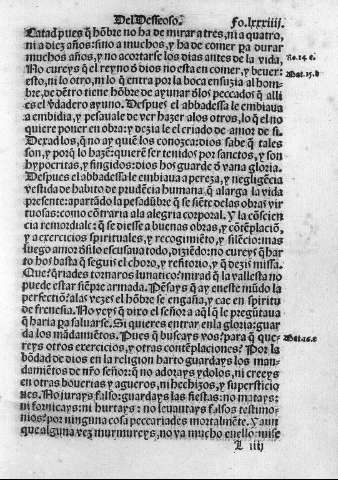 Del Desseoso. Fo.lxxxiiij.
Catad pues q̃ hõbre no ha de mirar a tres, ni a quatro,
ni a diez años: sino a muchos, y ha de comer pa durar
muchos años, y no acortarse los dias antes de la vida,
No cureys q̃ el reyno d̃ dios no esta en comer, y bever:
Ro.14.c.
esto, ni lo otro, ni lo q̃ entra por la boca ensuzia al hom-
Mat.15.b
bre, de dẽtro tiene hõbre de ayunar d̃ los peccados q̃ alli
es el v̉dadero ayuno. Despues el abbadessa le embiaua
a embidia, y pesauale de ver hazer a los otros, lo q̃ el no
quiere poner en obra: y dezia le el criado de amor de si.
Dexad los, que no ay quiẽ los conozca: dios sabe q̃ tales
son, y porq̃ lo hazẽ: quierẽ ser tenidos por sanctos, y son
hypocritas, y fingidos: dios hos guarde d̃ vana gloria.
Despues el abbadessa le embiaua a pereza, y negligẽcia
vestida de habito de prudẽcia humana, q̃ alarga la vida
presente: apartãdo la pesadũbre q̃ se siẽte de las obras vir
tuosas: como cõtraria a la alegria corporal. Y la cõsciẽn
cia remordiale: q̃ se diesse a buenas obras, y cõtẽplaciõ,
y a exercicios spirituales, y recogimiẽto, y silẽcio: mas
luego amor d̃ si lo escusaua todo, diziẽdo: no cureys q̃ har
to hos basta q̃ seguis el choro, y refitorio, y q̃ dezis missa.
Que? q̃riades tornaros lunatico? mirad q̃ la vallesta no
puede estar siẽpre armada. Pẽsays q̃ ay en este mũdo la
perfectiõ? a las vezes el hõbre se engaña, y cae en spiritu
de frenesia. No veys q̃ dixo el señor a aq̃l q̃ le pregũtaua
q̃ haria pa saluarse. Si quieres entrar en la gloria: guar
da los mãdamiẽtos. Pues q̃ buscays vos? para q̃ que-
Mat.16.c
reys otros exercicios, y otras contẽplaciones? Por la
bõdad de dios en la religion harto guardays los man-
damiẽtos de nr̃o señor: q̃ no adorays ydolos, ni creeys
en otras bouerias y agueros, ni hechizos, y supersticio
nes. No jurays falso: guardays las fiestas: no matays:
ni fornicays: ni hurtays: no leuantays falsos testimo-
nios? por ninguna cosa peccariades mortalmẽte. Y aun
que alguna vez murmureys, no va mucho en ello: mise
L iiij